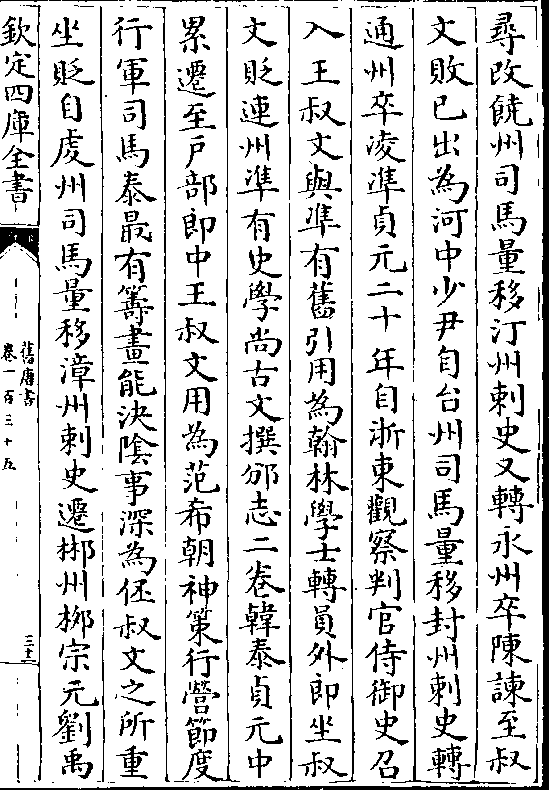 尋改饒州司馬量移汀州刺史又轉永州卒陳諫至叔
文敗已出為河中少尹自台州司馬量移封州刺史轉
通州卒凌準貞元二十年自浙東觀察判官侍御史召
入王叔文與準有舊引用為翰林學士轉員外郎坐叔
文貶連州準有史學尚古文撰邠志二卷韓泰貞元中
累遷至戸部郎中王叔文用為范希朝神策行營節度
行軍司馬泰最有籌畫能決陰事深為伾叔文之所重
坐貶自虔州司馬量移漳州刺史遷郴州栁宗元劉禹
欽定四庫全書
舊唐書
卷一百三十五
三十二